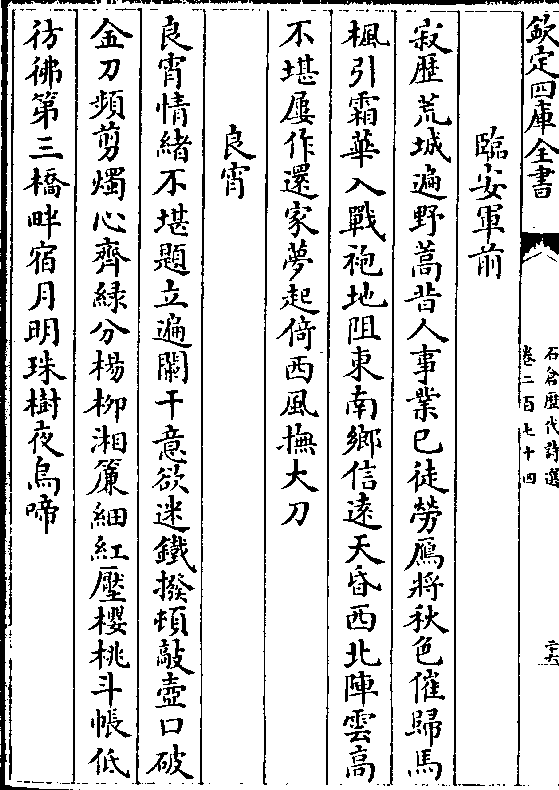 欽定四庫全書
石倉歷代詩選
卷二百七十四
二十六
臨安軍前
寂歷荒城遍野蒿昔人事業已徒勞鴈將秋色催歸馬
楓引霜華入戰袍地阻東南鄉信遠天昏西北陣雲高
不堪屢作還家夢起倚西風撫大刀
良宵
良宵情緒不堪題立遍闌干意欲迷鐵撥頓敲壺口破
金刀頻剪燭心齊緑分楊柳湘簾細紅壓櫻桃斗帳低
彷彿第三橋畔宿月明珠樹夜烏啼